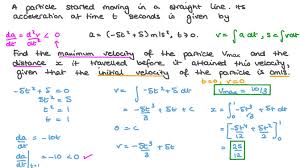 A particle started moving in a straight line. Its
acceleration at time t seconds is given by
da/dt = d²v/dt² < 0
a = (-5t² + 5) m/s², t ≥ 0.
v = ∫a dt, s = ∫v dt
Find the maximum velocity of the particle vmax and the
distance x it travelled before it attained this velocity,
given that the initial velocity of the particle is 0m/s.
t=0, v=0
vmax = 10/3
-5t² + 5 = 0
5t² = 5
t² = 1
t = 1
da/dt = -10t
da/dt |t=1 = -10 < 0 ✓
v = ∫ -5t² + 5 dt
= -5t³/3 + 5t + c
0 = c
v = -5t³/3 + 5t
x = ∫₀¹ -5t³/3 + 5t dt
= [-5t⁴/12 + 5t²/2]₀¹
= 25/12